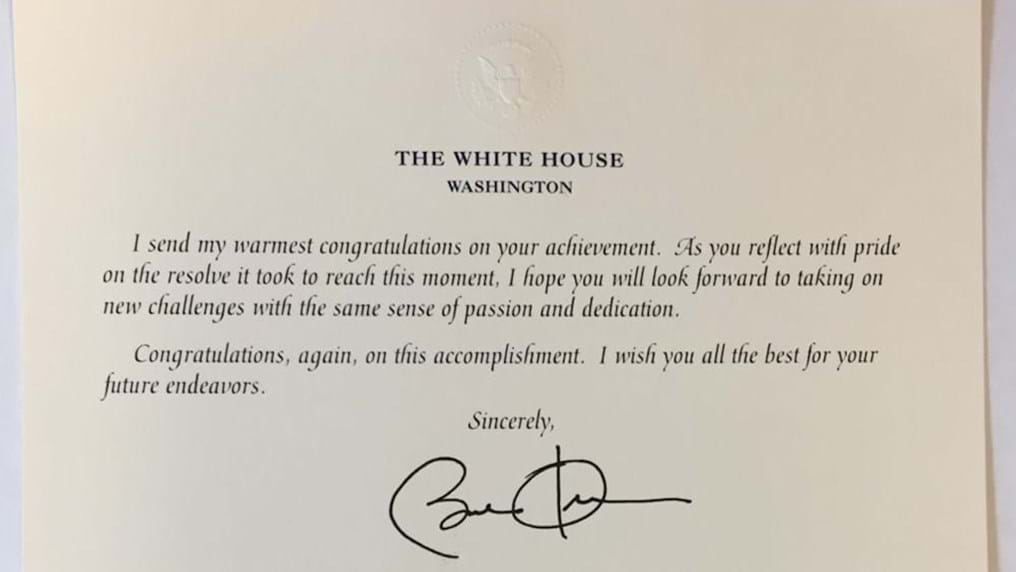 THE WHITE HOUSE
WASHINGTON
I send my warmest congratulations on your achievement. As you reflect with pride
on the resolve it took to reach this moment, I hope you will look forward to taking on
new challenges with the same sense of passion and dedication.
Congratulations, again, on this accomplishment. I wish you all the best for your
future endeavors.
Sincerely,